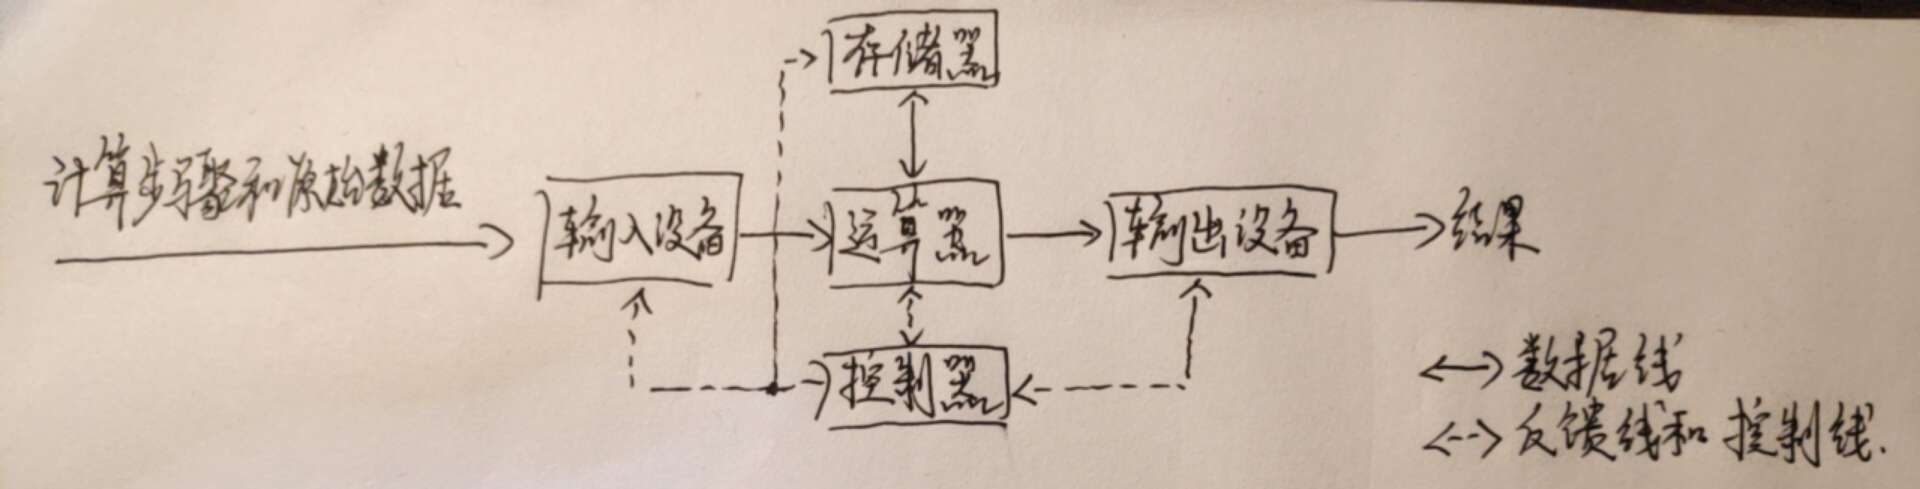 存储器
计算步骤和原始数据
输入设备
运算器
输出设备
结果
控制器
数据线
反馈线和控制线.